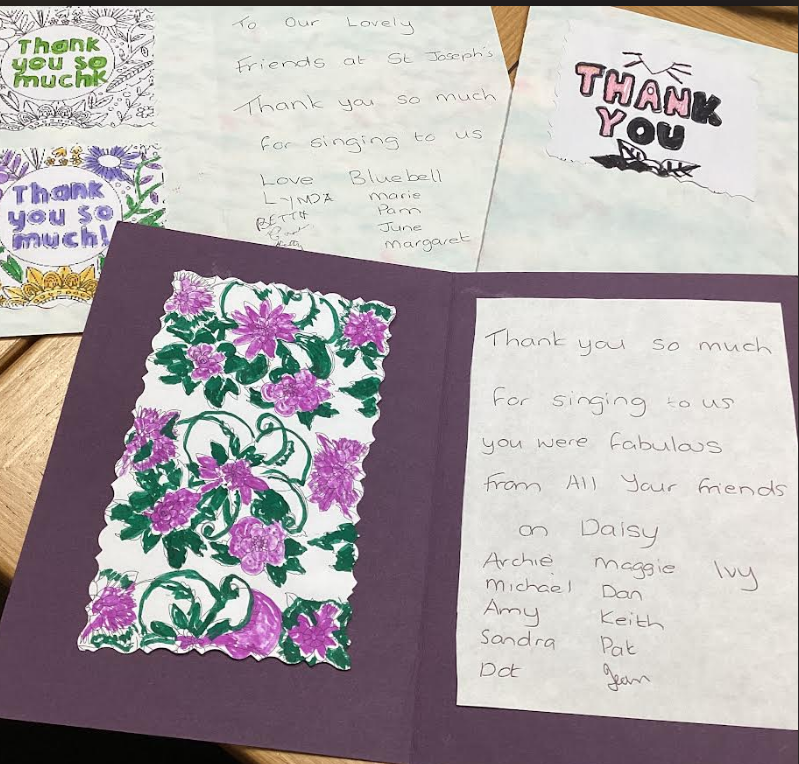 Thank
you so
muchk
Thank
you so
much!
To Our Lovely
Friends at St Joseph's
Thank you so much
for singing to us
Love Bluebell
LYNDA marie
BETTH Pam
June
margaret
THANK
YOU
Thank you so much
for singing to us
you were fabulous
from All Your friends
on Daisy
Archie maggie Ivy
michael Dan
Amy Keith
Sandra Pat
Dot Jean